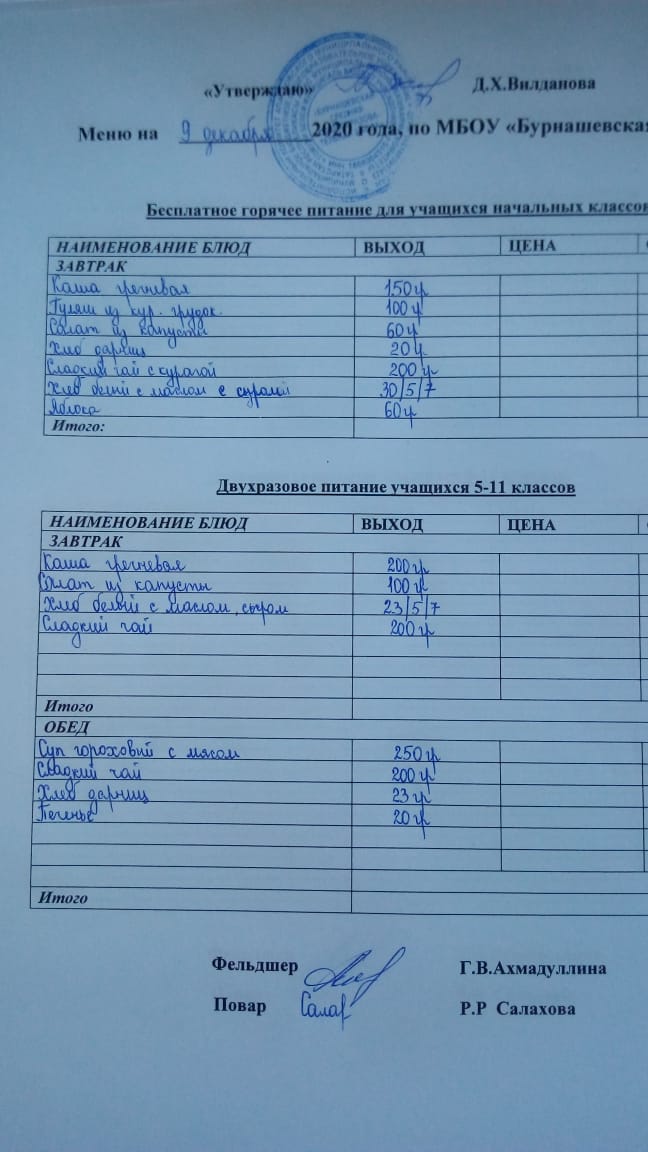 «Утверждаю» Д.Х.Вилданова
Меню на 9 декабря 2020 года, по МБОУ «Бурнашевска
Бесплатное горячее питание для учащихся начальных классов
НАИМЕНОВАНИЕ БЛЮД ВЫХОД ЦЕНА
ЗАВТРАК
Каша гречневая 150 гр
Гуляш из кур. грудок. 100 гр
Салат из капусты 60 гр
Хлеб дарниц 20 гр
Сладкий чай с курагой 200 гр
Хлеб белый с маслом с сыром 30/5/7
Яблоко 60 гр
Итого:
Двухразовое питание учащихся 5-11 классов
НАИМЕНОВАНИЕ БЛЮД ВЫХОД ЦЕНА
ЗАВТРАК
Каша гречневая 200 гр
Салат из капусты 100 гр
Хлеб белый с маслом, сыром 23/5/7
Сладкий чай 200 гр
Итого
ОБЕД
Суп гороховый с мясом 250 гр
Сладкий чай 200 гр
Хлеб дарниц 23 гр
Печенье 20 гр
Итого
Фельдшер Г.В.Ахмадуллина
Повар Салах Р.Р Салахова